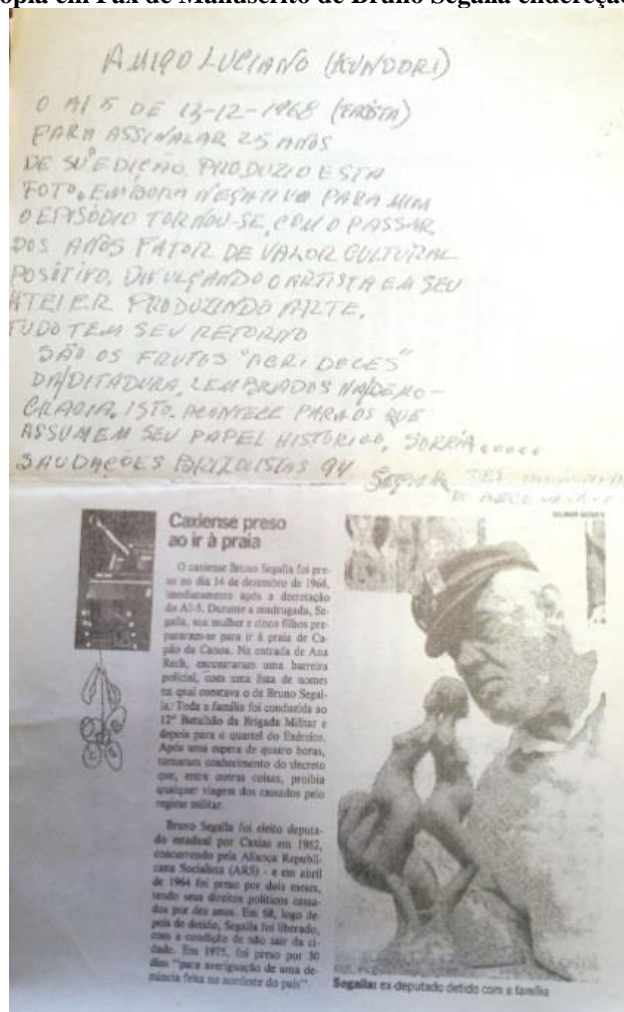 ópia em Fax de Manuscrito de Bruno Segalla endereça
AMIGO LUCIANO (KUNDORI)
O AI 5 DE 13-12-1968
PARA ASSINALAR 25 ANOS
DE SUª EDIÇÃO. PRODUZIO ESTA
FOTO, EMBORA NEGATIVO PARA MIM
O EPISÓDIO TORNOU-SE, COM O PASSAR
DOS ANOS FATOR DE VALOR CULTURAL
POSITIVO, DIVULGANDO O ARTISTA EM SEU
ATELIER PRODUZINDO ARTE.
TUDO TEM SEU RETORNO
SÃO OS FRUTOS "AGRI DOCES"
DA/DITADURA, LEMBRADOS NA/DEMO-
CRACIA. ISTO. ACONTECE PARA OS QUE
ASSUMEM SEU PAPEL HISTÓRICO, SORRIA.....
SAUDAÇÕES BRIZOLISTAS 94 Segalla
Caxiense preso
ao ir à praia
O caxiense Bruno Segalla foi pre-
so no dia 14 de dezembro de 1968,
imediatamente após a decretação
do AI-5. Durante a madrugada, Se-
galla, sua mulher e cinco filhos pre-
pararam-se para ir à praia de Ca-
pão da Canoa. Na entrada de Ana
Rech, encontraram uma barreira
policial, com uma lista de nomes
na qual constava o de Bruno Segal-
la. Toda a família foi conduzida ao
12º Batalhão da Brigada Militar e
depois para o quartel do Exército.
Após uma espera de quatro horas,
tomaram conhecimento do decreto
que, entre outras coisas, proibia
qualquer viagem dos cassados pelo
regime militar.
Bruno Segalla foi eleito deputa-
do estadual por Caxias em 1962,
concorrendo pela Aliança Republi-
cana Socialista (ARS) - e em abril
de 1964 foi preso por dois meses,
tendo seus direitos políticos cassa-
dos por dez anos. Em 68, logo de-
pois de detido, Segalla foi liberado,
com a condição de não sair da ci-
dade. Em 1975, foi preso por 30
dias "para averiguação de uma de-
núncia feita no nordeste do país".
GILMAR GOMES
Segalla: ex-deputado detido com a família